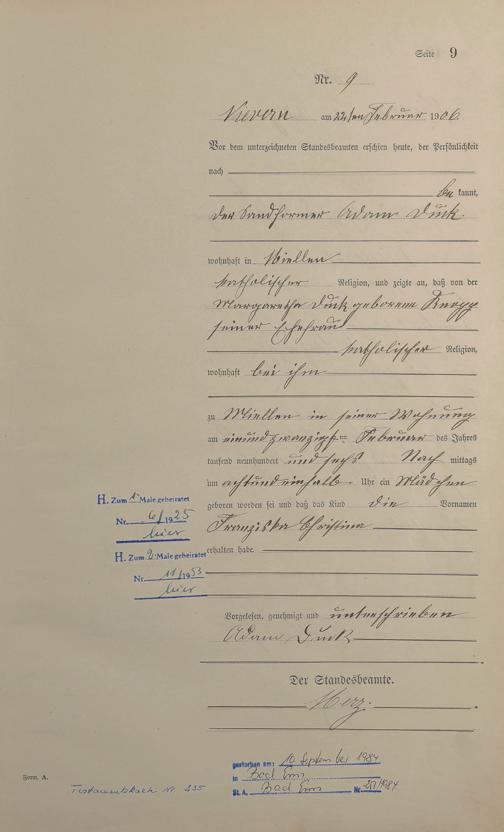 Seite 9
Nr. 9
Nievern am 22ten Februar 1906
Vor dem unterzeichneten Standesbeamten erschien heute, der Persönlichkeit
nach
be kannt,
der Sandformer Adam Duck
wohnhaft in Miellen
katholischer Religion, und zeigte an, daß von der
Margaretha Duck geborenen Knopp
seiner Ehefrau
katholischer Religion,
wohnhaft bei ihm
zu Miellen in seiner Wohnung
am einundzwanzigsten Februar des Jahres
tausend neunhundert und sechs Nach mittags
um achtundeinhalb Uhr ein Mädchen
geboren worden sei und daß das Kind die Vornamen
Franziska Christina
erhalten habe.
H. Zum 1. Male geheiratet
Nr. 6/1925
hier
H. Zum 2. Male geheiratet
Nr. 11/1953
hier
Vorgelesen, genehmigt und unterschrieben
Adam Duck
Der Standesbeamte.
Merz.
gestorben am: 10. September 1984
in Bad Ems
St. A. Bad Ems Nr. 251/1984
Form. A.
Testamentskartei Nr. 235